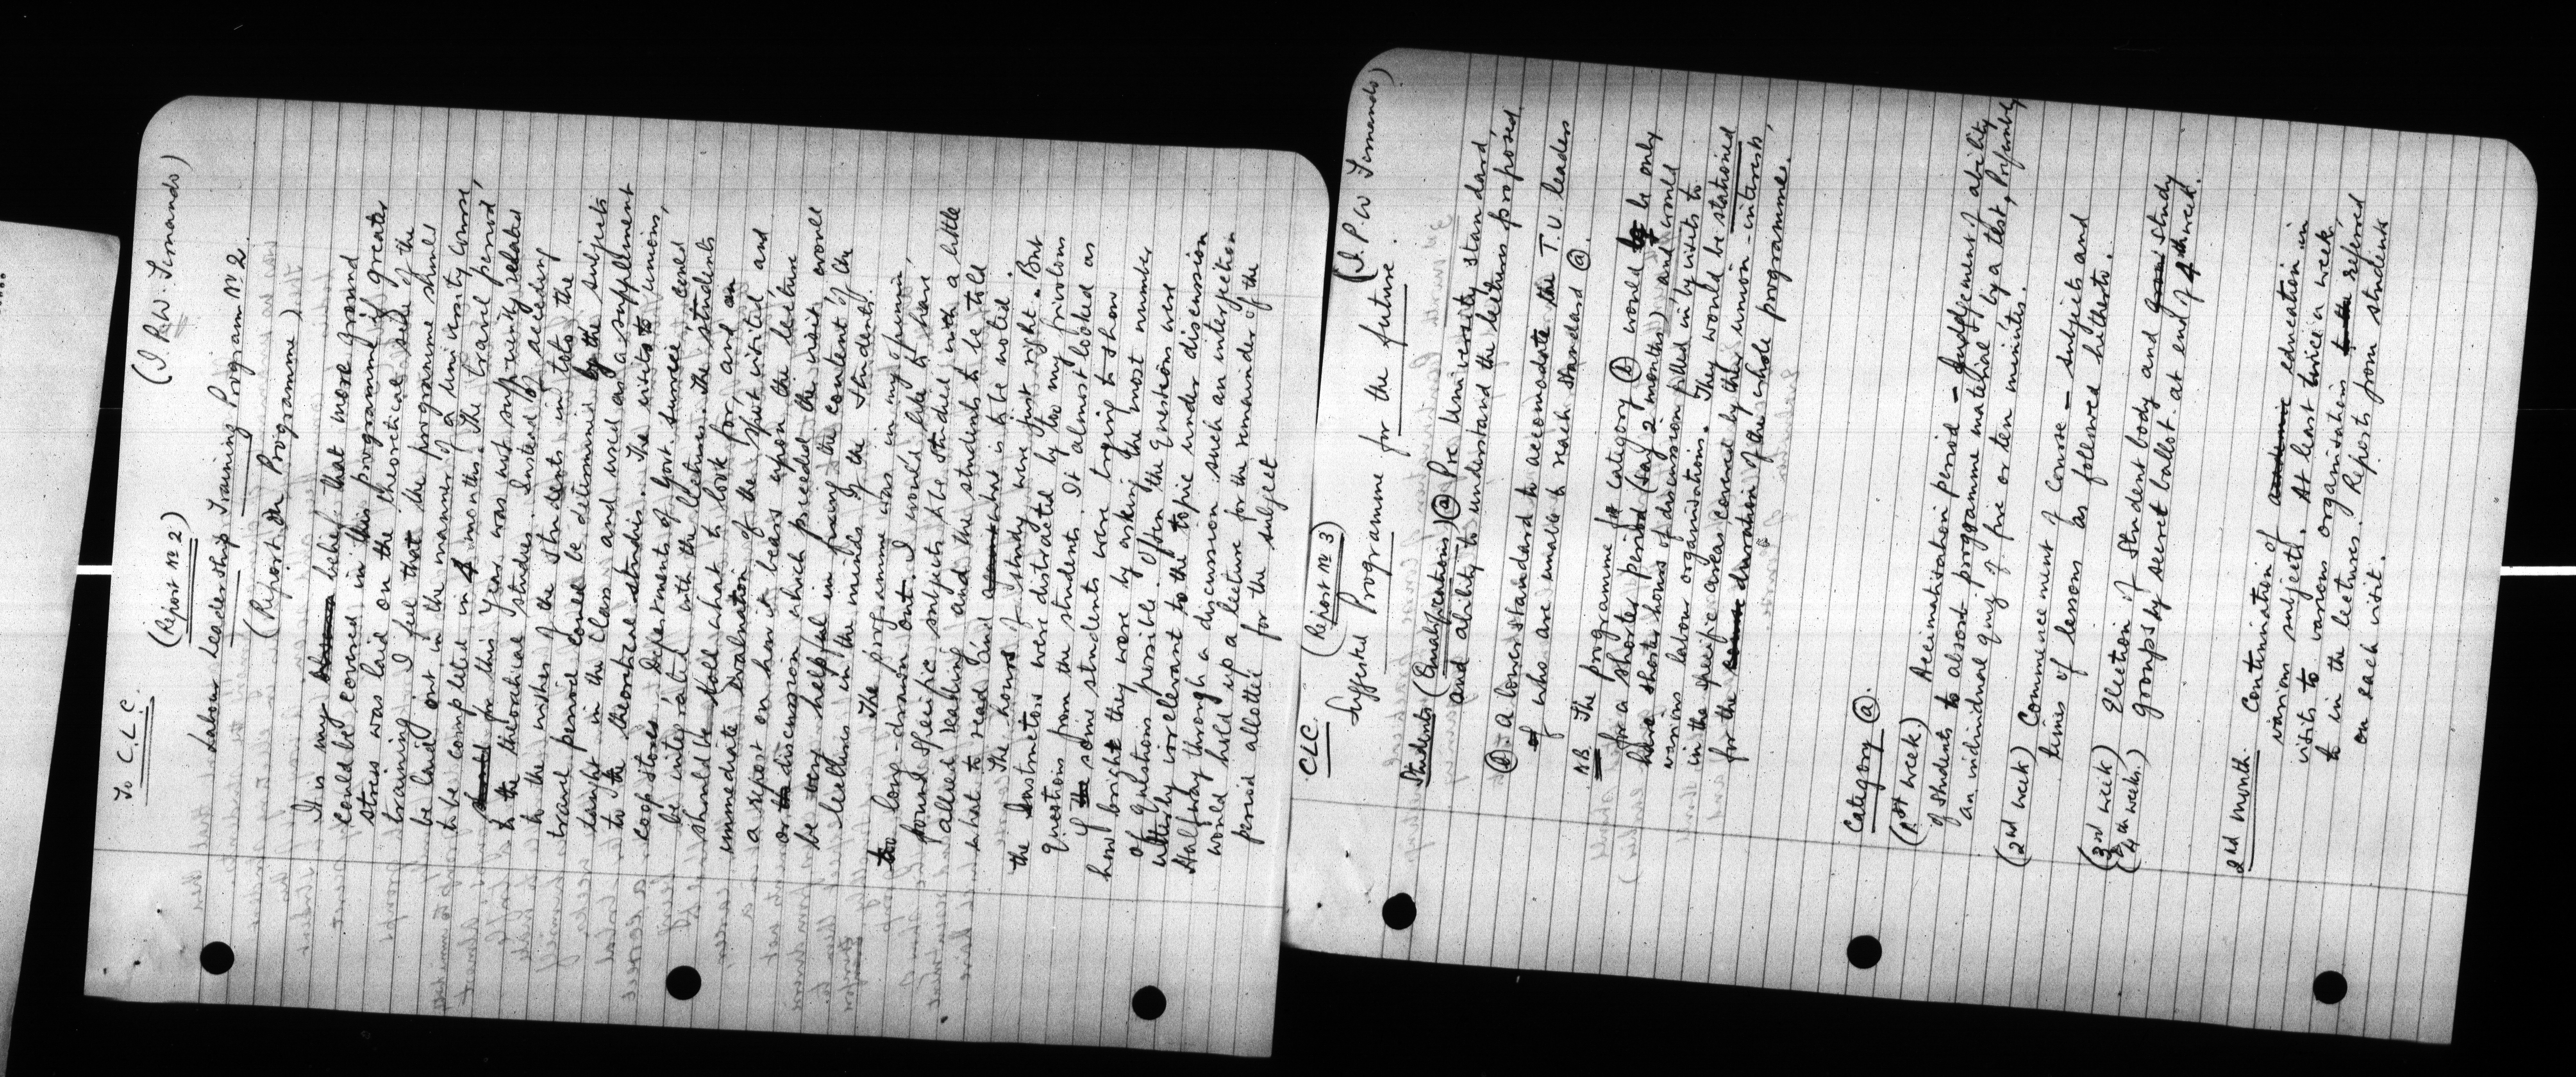 To C.L.C. (Report No 2) (I.P.W. Fernando)
Labour Leadership Training Program No 2.
(Report on Programme)
It is my belief that more ground
could be covered in this programme if greater
stress was laid on the theoretical side of the
training. I feel that the programme should
be laid out in the manner of a university course,
to be completed in 4 months. The travel period
for this Year was not sufficiently related
to the theoratical studies. Instead of acceeding
to the wishes of the students in toto the
travel period could be determined by the subjects
taught in the class and used as a supplement
to the theoretical studies. The visits to unions,
coop stores, departments of govt service, could
be integrated with the lectures. The students
should be told what to look for, and an
immediate evaluation of the spot visited, and
a report on how it bears upon the lecture
or discussion which preceded the visit would
be very helpful in fixing the content of the
lectures in the minds of the students.
The programme was in my opinion,
too long-drawn out. I would like to have
found specific subjects to be studied with a little
allied reading and the students to be told
what to read and what is to be noted.
The hours of study were just right. But
the Instructors were distracted by too many frivolous
questions from the students. It almost looked as
if some students were trying to show
how bright they were by asking the most number
of questions possible. Often the questions were
utterly irrelevant to the topic under discussion
Halfway through a discussion such an interjection
would hold up a lecture for the remainder of the
period allotted for the subject
CLC. (Report No 3) (I.P.W Fernando)
Suggested Programme for the future.
Students (Qualifications) (a) Pre University standard,
and ability to understand the lectures proposed.
(b) - a lower standard to accomodate the T.U. leaders
of who are unable to reach standard (a).
N.B. The programme for category (b) would be only
for a shorter period (say 2 months) and would
have shorter hours of discussion filled in by visits to
various labour organisations. They would be stationed
in the specific areas covered by their union-interests,
for the duration of the whole programme.
Category (a).
(1st week) Acclimitisation period - Judgement of ability
of students to absorb programme material by a test, Preferably
an individual quiz of five or ten minutes.
(2nd week) Commencement of Course - subjects and
times of lessons as followed hitherto.
(3rd week) Election of Student body and study
(4th week.) groups by secret ballot at end of 4th week.
2nd Month. Continuation of education in
various subjects. At least twice a week.
visits to various organisations referred
to in the lectures. Reports from students
on each visit.